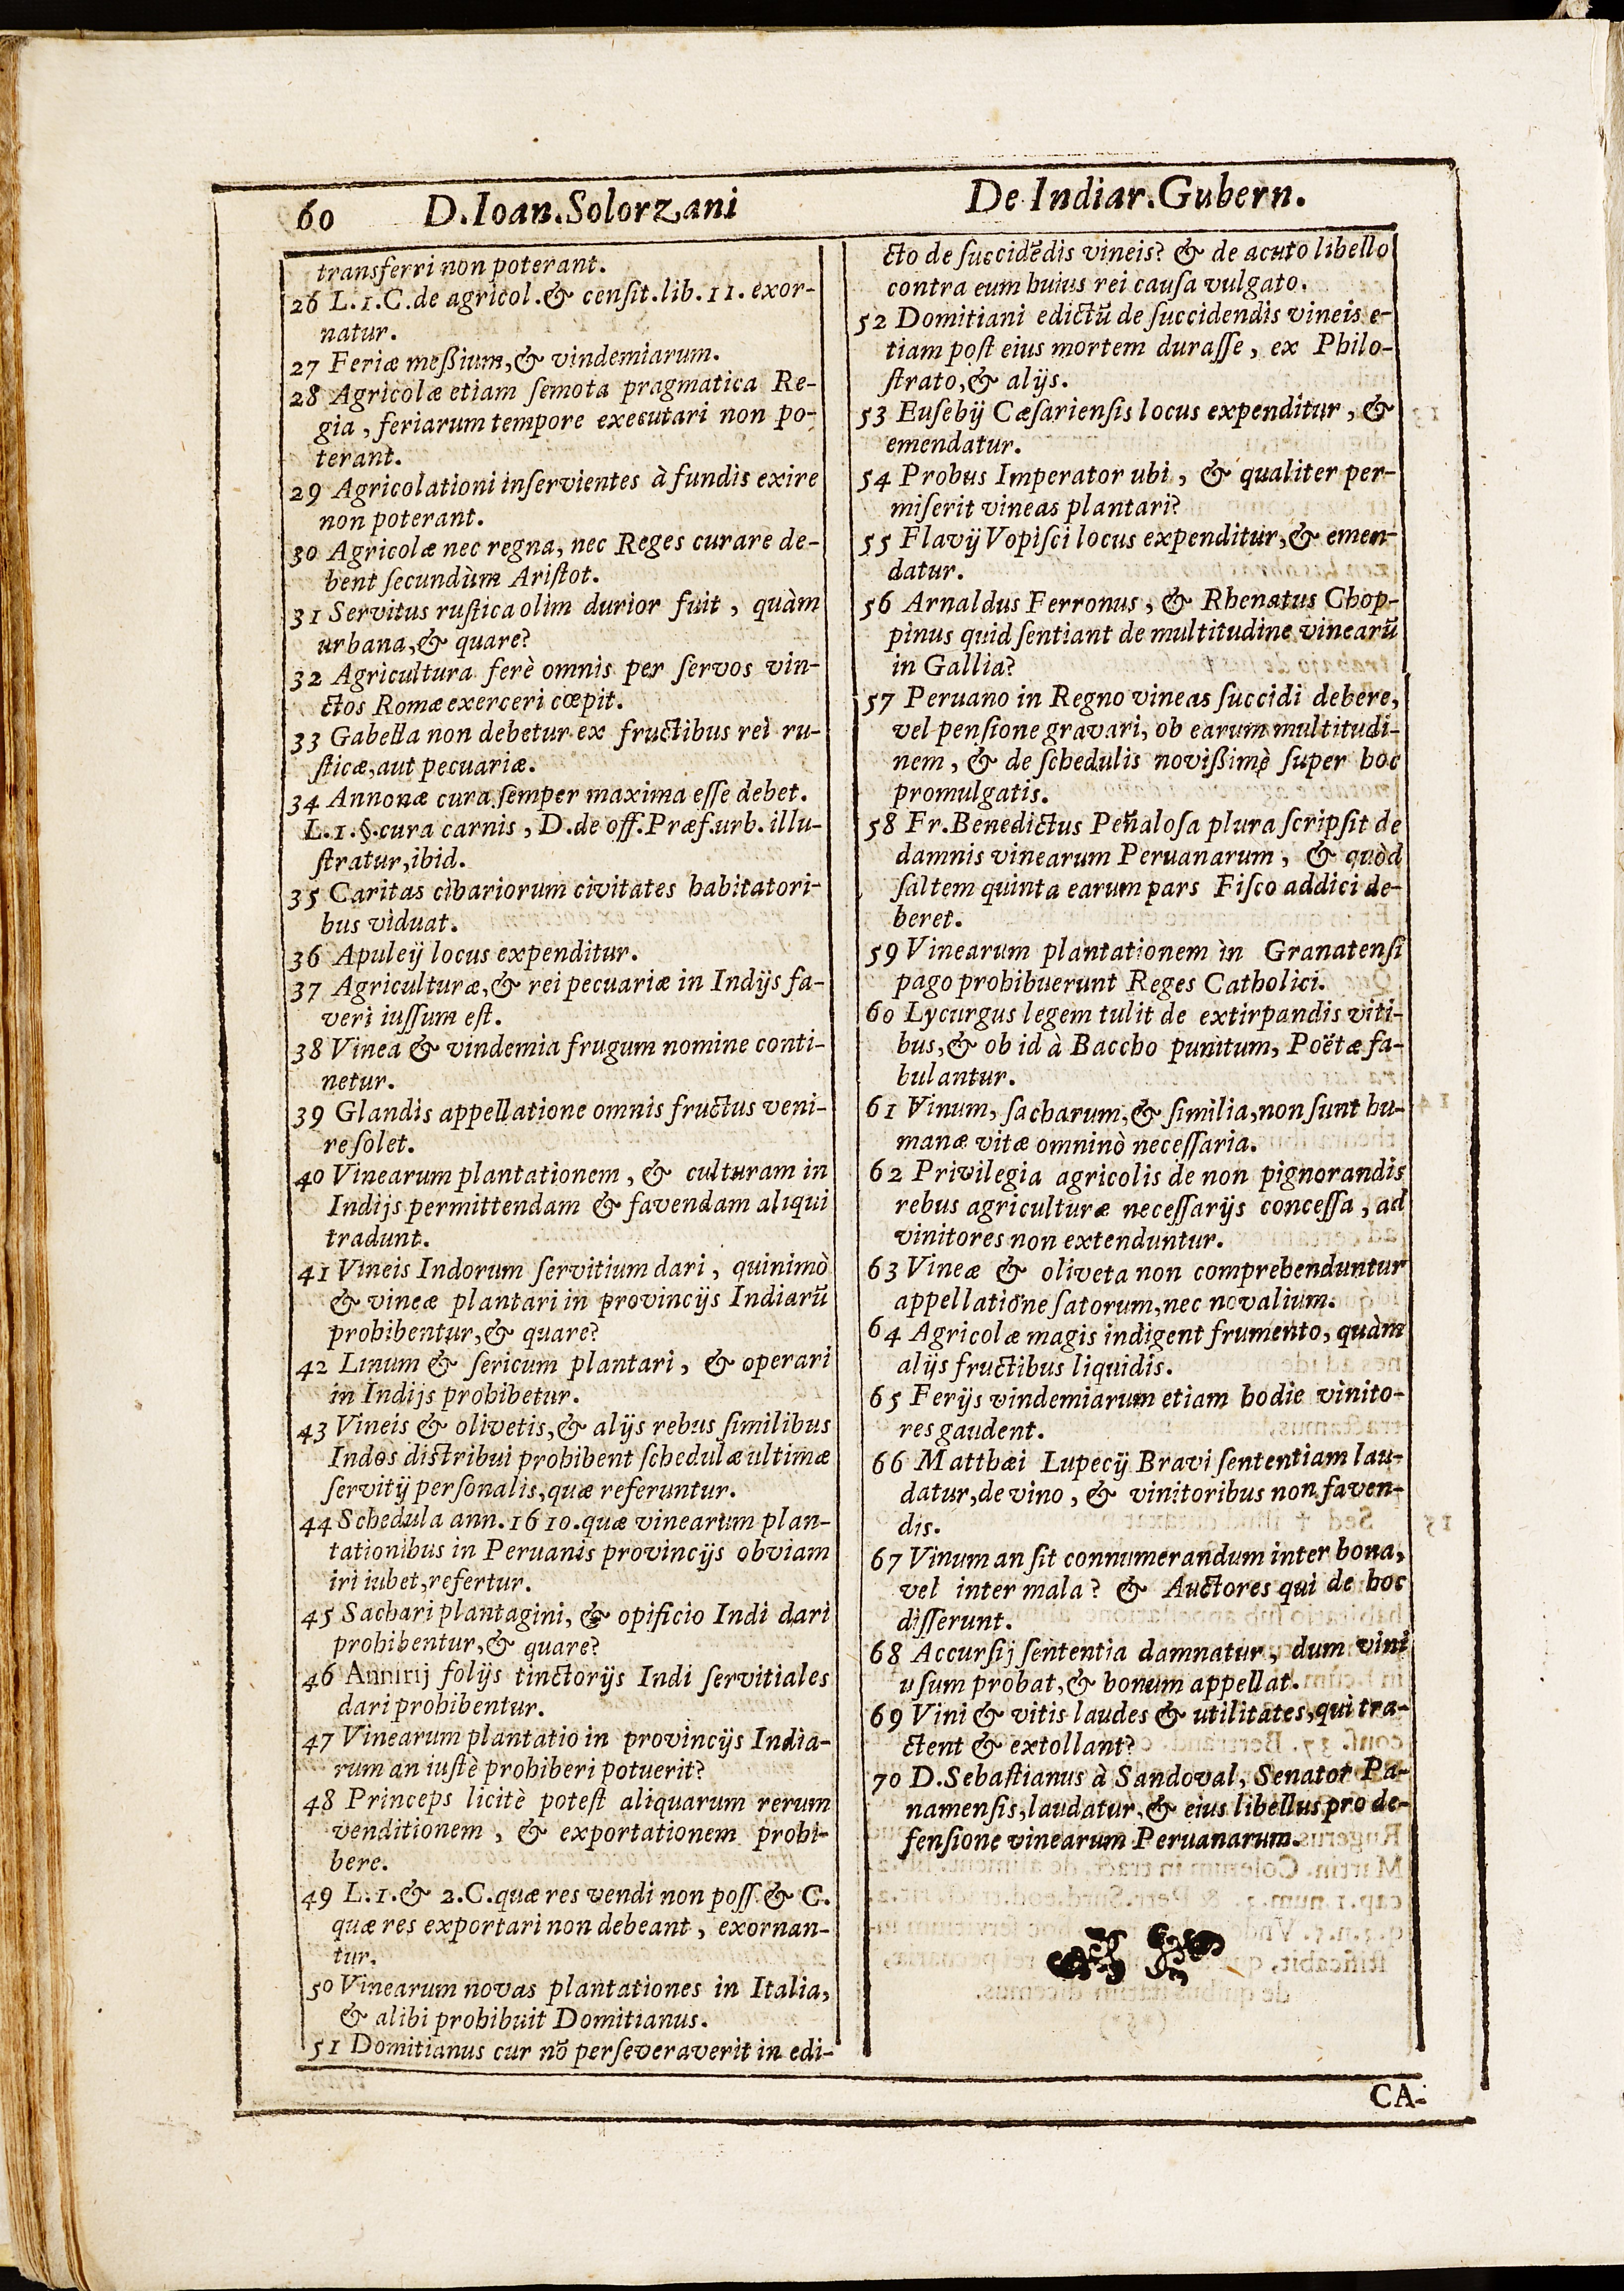 60 D.Ioan.Solorzani De Indiar.Gubern.
transferri non poterant.
26 L.1.C.de agricol.& censit.lib.11.exor-
natur.
27 Feriæ meßium,& vindemiarum.
28 Agricolæ etiam semota pragmatica Re-
gia, feriarum tempore executari non po-
terant.
29 Agricolationi inservientes à fundis exire
non poterant.
30 Agricolæ nec regna, nec Reges curare de-
bent secundùm Aristot.
31 Servitus rustica olim durior fuit, quàm
urbana,& quare?
32 Agricultura ferè omnis per servos vin-
ctos Romæ exerceri cœpit.
33 Gabella non debetur ex fructibus rei ru-
sticæ,aut pecuariæ.
34 Annonæ cura semper maxima esse debet.
L.1.§.cura carnis, D.de off.Præf.urb.illu-
stratur,ibid.
35 Caritas cibariorum civitates habitatori-
bus viduat.
36 Apuleij locus expenditur.
37 Agriculturæ,& rei pecuariæ in Indijs fa-
veri iussum est.
38 Vinea & vindemia frugum nomine conti-
netur.
39 Glandis appellatione omnis fructus veni-
re solet.
40 Vinearum plantationem, & culturam in
Indijs permittendam & favendam aliqui
tradunt.
41 Vineis Indorum servitium dari, quinimò
& vineæ plantari in provincijs Indiarū
prohibentur,& quare?
42 Linum & sericum plantari, & operari
in Indijs prohibetur.
43 Vineis & olivetis,& alijs rebus similibus
Indos distribui prohibent schedulæ ultimæ
servitij personalis,quæ referuntur.
44 Schedula ann.1610.quæ vinearum plan-
tationibus in Peruanis provincijs obviam
iri iubet,refertur.
45 Sachari plantagini, & opificio Indi dari
prohibentur,& quare?
46 Annirij folijs tinctorijs Indi servitiales
dari prohibentur.
47 Vinearum plantatio in provincijs India-
rum an iustè prohiberi potuerit?
48 Princeps licitè potest aliquarum rerum
venditionem, & exportationem prohi-
bere.
49 L.1.& 2.C.quæ res vendi non poss.& C.
quæ res exportari non debeant, exornan-
tur.
50 Vinearum novas plantationes in Italia,
& alibi prohibuit Domitianus.
51 Domitianus cur nō perseveraverit in edi-
cto de succidēdis vineis? & de acuto libello
contra eum huius rei causa vulgato.
52 Domitiani edictū de succidendis vineis e-
tiam post eius mortem durasse, ex Philo-
strato,& alijs.
53 Eusebij Cæsariensis locus expenditur, &
emendatur.
54 Probus Imperator ubi, & qualiter per-
miserit vineas plantari?
55 Flavij Vopisci locus expenditur,& emen-
datur.
56 Arnaldus Ferronus, & Rhenatus Chop-
pinus quid sentiant de multitudine vinearū
in Gallia?
57 Peruano in Regno vineas succidi debere,
vel pensione gravari, ob earum multitudi-
nem, & de schedulis novißimè super hoc
promulgatis.
58 Fr.Benedictus Peñalosa plura scripsit de
damnis vinearum Peruanarum, & quòd
saltem quinta earum pars Fisco addici de-
beret.
59 Vinearum plantationem in Granatensi
pago prohibuerunt Reges Catholici.
60 Lycurgus legem tulit de extirpandis viti-
bus,& ob id à Baccho punitum, Poëtæ fa-
bulantur.
61 Vinum, sacharum,& similia,non sunt hu-
manæ vitæ omninò necessaria.
62 Privilegia agricolis de non pignorandis
rebus agriculturæ necessarijs concessa, ad
vinitores non extenduntur.
63 Vineæ & oliveta non comprehenduntur
appellatione satorum,nec novalium.
64 Agricolæ magis indigent frumento, quàm
alijs fructibus liquidis.
65 Ferijs vindemiarum etiam hodie vinito-
res gaudent.
66 Matthæi Lupecij Bravi sententiam lau-
datur,de vino, & vinitoribus non faven-
dis.
67 Vinum an sit connumerandum inter bona,
vel inter mala? & Auctores qui de hoc
disserunt.
68 Accursij sententia damnatur, dum vini
usum probat,& bonum appellat.
69 Vini & vitis laudes & utilitates,qui tra-
ctent & extollant?
70 D.Sebastianus à Sandoval, Senator Pa-
namensis,laudatur,& eius libellus pro de-
fensione vinearum Peruanarum.
CA-